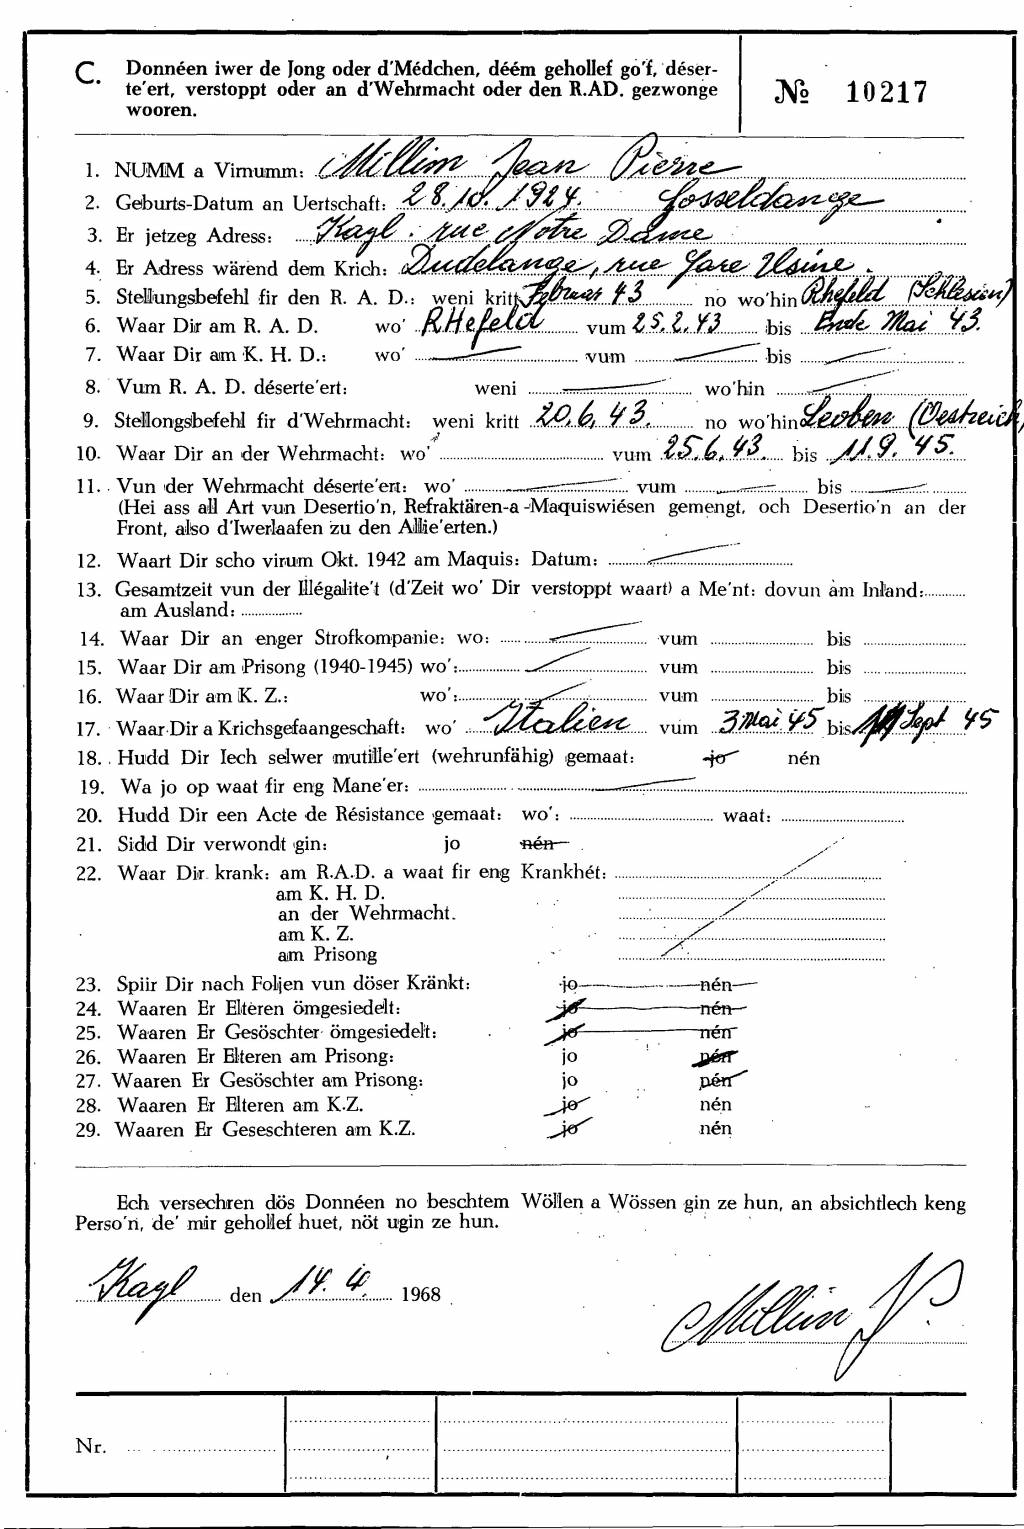 C. Donnéen iwer de Jong oder d'Médchen, déém gehollef go'f, déser-
te'ert, verstoppt oder an d'Wehrmacht oder den R.AD. gezwonge
wooren.
№ 10217
1. NUMM a Virnumm: Millim Jean Pierre
2. Geburts-Datum an Uertschaft: 28.10.1924. Gosseldange
3. Er jetzeg Adress: Kayl. rue Notre Dame
4. Er Adress wärend dem Krich: Dudelange, rue Gare Usine.
5. Stellungsbefehl fir den R. A. D.: weni kritt Februar 43 no wo'hin Rhefeld (Schlesien)
6. Waar Dir am R. A. D. wo' RHefeld vum 25.2.43 bis Ende Mai 43.
7. Waar Dir am K. H. D.: wo' vum bis
8. Vum R. A. D. déserte'ert: weni wo'hin
9. Stellongsbefehl fir d'Wehrmacht: weni kritt 20.6.43. no wo'hin Leoben (Oestreich)
10. Waar Dir an der Wehrmacht: wo' vum 25.6.43. bis 11.9.45.
11. Vun der Wehrmacht déserte'ert: wo' vum bis
(Hei ass all Art vun Desertio'n, Refraktären-a-Maquiswiésen gemengt, och Desertio'n an der
Front, also d'Iwerlaafen zu den Allie'erten.)
12. Waart Dir scho virum Okt. 1942 am Maquis: Datum:
13. Gesamtzeit vun der Illégalite't (d'Zeit wo' Dir verstoppt waart) a Me'nt: dovun am Inland:
am Ausland:
14. Waar Dir an enger Strofkompanie: wo: vum bis
15. Waar Dir am Prisong (1940-1945) wo': vum bis
16. Waar Dir am K. Z.: wo': vum bis
17. Waar Dir a Krichsgefaangeschaft: wo' Italien vum 3 Mai 45 bis 11 Sept 45
18. Hudd Dir Iech selwer mutille'ert (wehrunfähig) gemaat: jo nén
19. Wa jo op waat fir eng Mane'er:
20. Hudd Dir een Acte de Résistance gemaat: wo': waat:
21. Sidd Dir verwondt gin: jo nén
22. Waar Dir krank: am R.A.D. a waat fir eng Krankhét:
am K. H. D.
an der Wehrmacht.
am K. Z.
am Prisong
23. Spiir Dir nach Foljen vun döser Kränkt: jo nén
24. Waaren Er Elteren ömgesiedelt: jo nén
25. Waaren Er Gesöschter ömgesiedelt: jo nén
26. Waaren Er Elteren am Prisong: jo nén
27. Waaren Er Gesöschter am Prisong: jo nén
28. Waaren Er Elteren am K.Z. jo nén
29. Waaren Er Geseschteren am K.Z. jo nén
Ech versechren dös Donnéen no beschtem Wöllen a Wössen gin ze hun, an absichtlech keng
Perso'n, de' mir gehollef huet, nöt ugin ze hun.
Kayl den 14.4. 1968
Millim J P.
Nr.